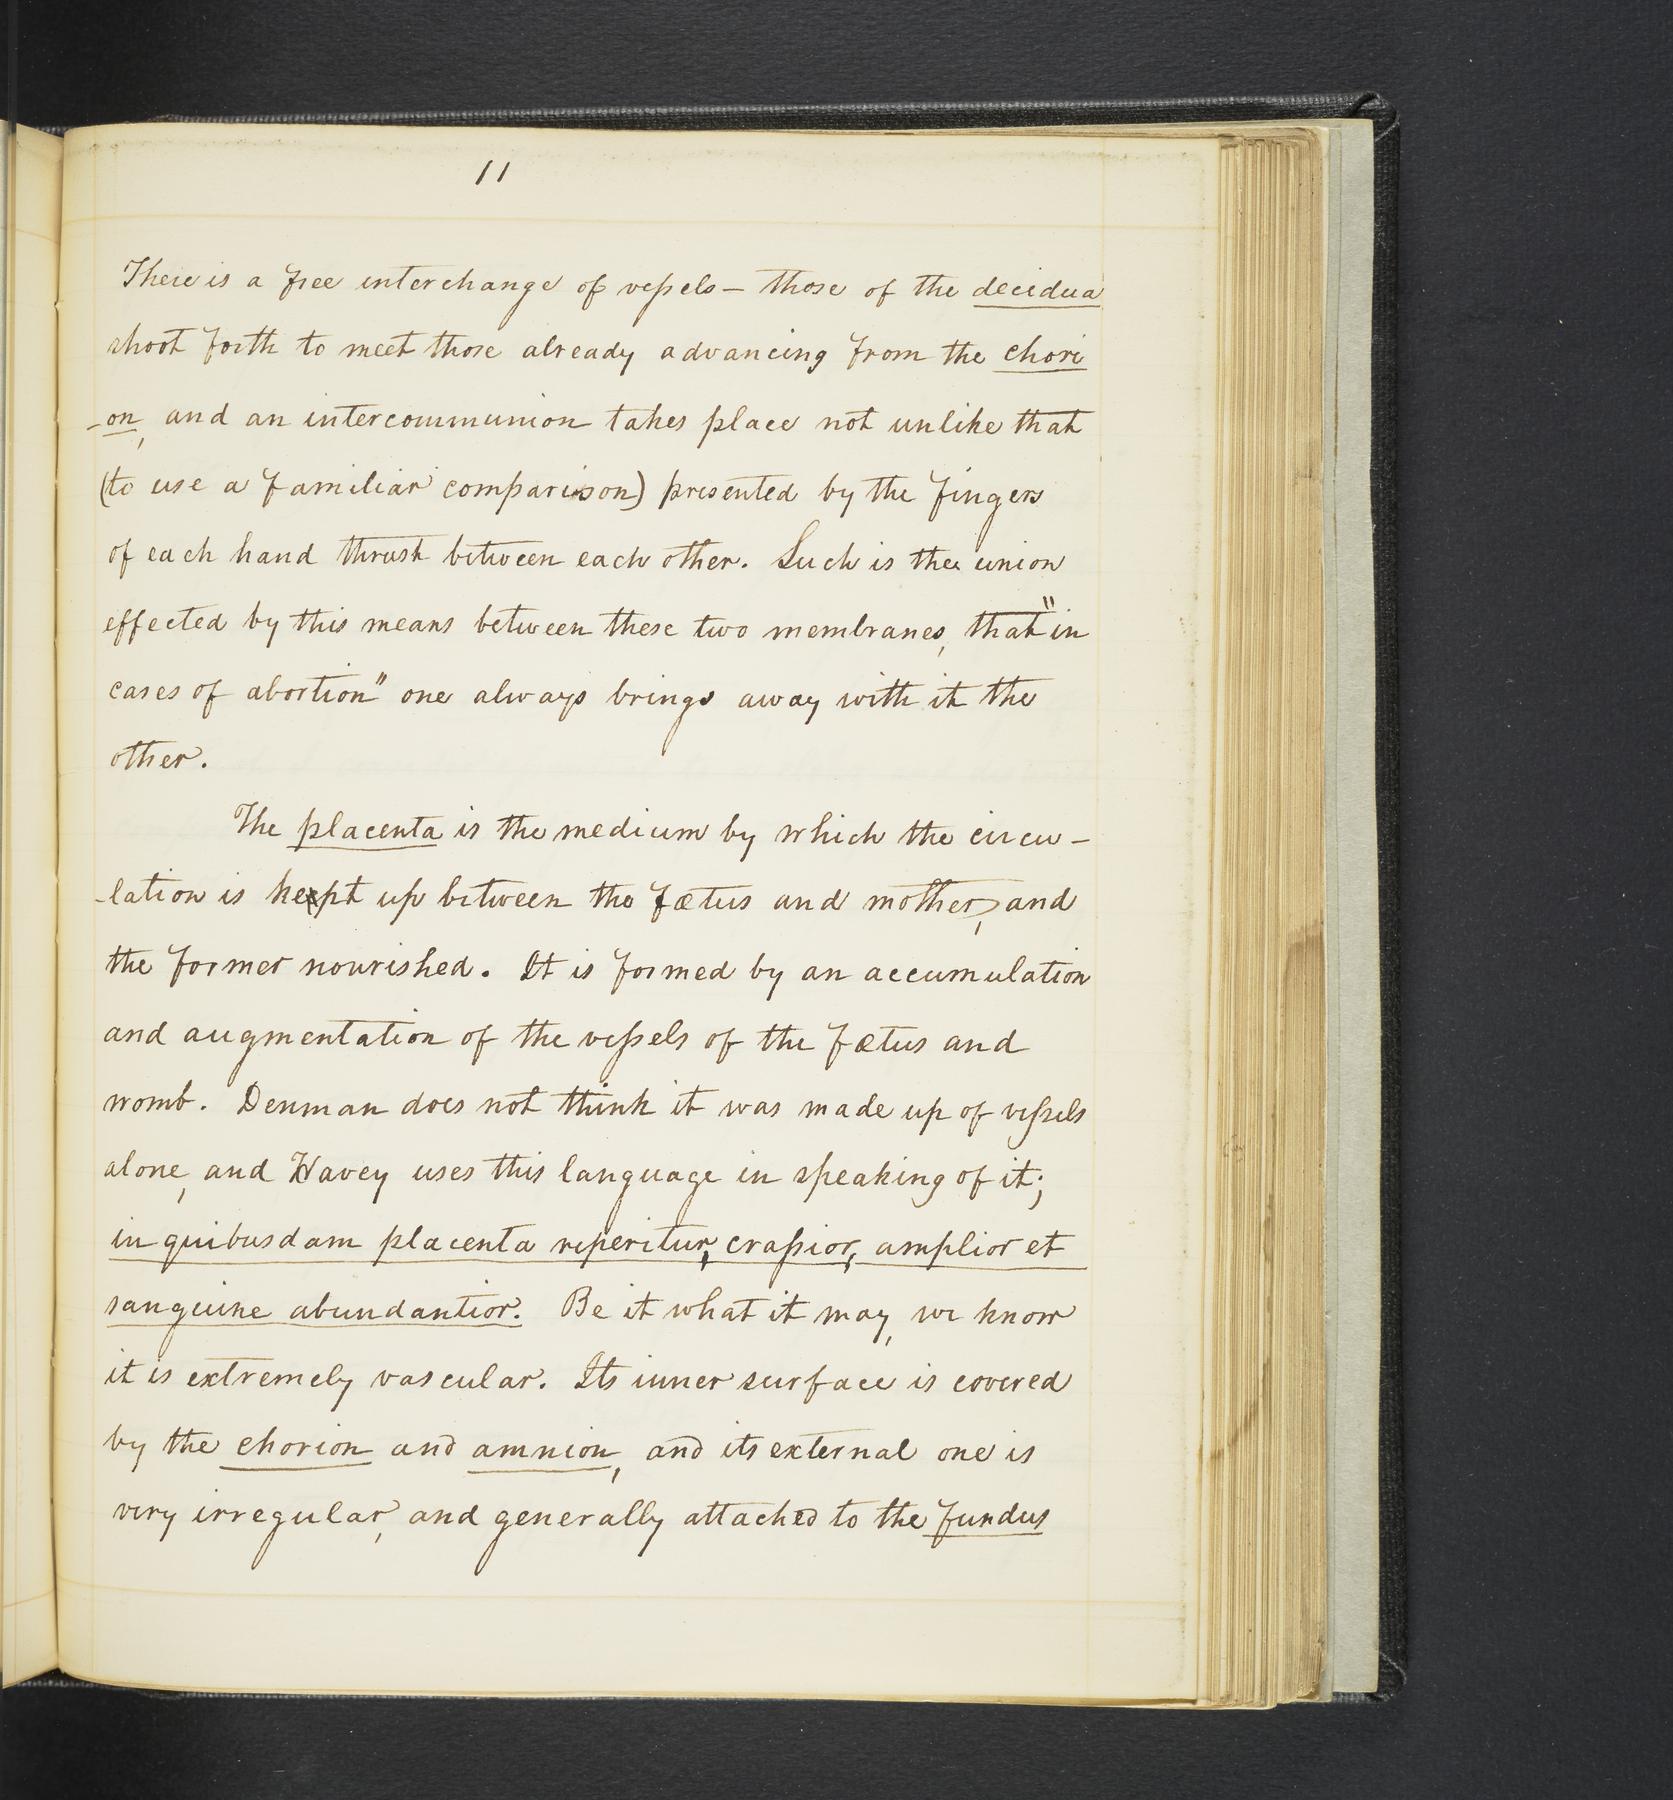 11
There is a free interchange of vessels - those of the decidua
shoot forth to meet those already advancing from the chori
-on, and an intercommunion takes place not unlike that
(to use a familiar comparison) presented by the fingers
of each hand thrust between each other. Such is the union
effected by this means between these two membranes, that "in
cases of abortion" one always brings away with it the
other.
The placenta is the medium by which the circu-
-lation is kept up between the fœtus and mother, and
the former nourished. It is formed by an accumulation
and augmentation of the vessels of the fœtus and
womb. Denman does not think it was made up of vessels
alone, and Havey uses this language in speaking of it;
in quibusdam placenta reperitur, crassior, amplior et
sanguine abundantior. Be it what it may, we know
it is extremely vascular. Its inner surface is covered
by the chorion and amnion, and its external one is
very irregular, and generally attached to the fundus